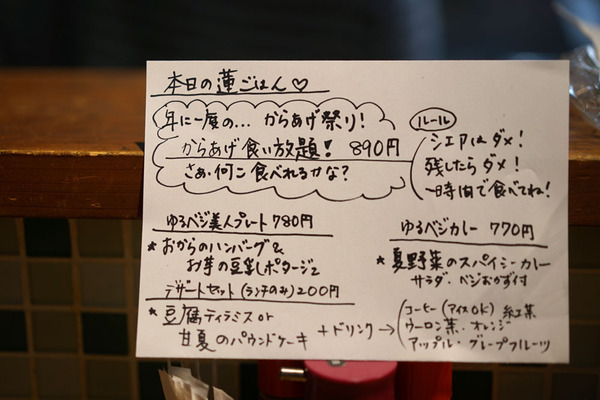 本日の蓮ごはん♡
年に一度の... からあげ祭り!
からあげ食い放題! 890円
さぁ、何コ食べれるかな?
ルール
シェアはダメ!
残したらダメ!
一時間で食べてね!
ゆるベジ美人プレート 780円
★おからのハンバーグ&
お芋の豆乳ポタージュ
デザートセット(ランチのみ)200円
★豆腐ティラミス or
甘夏のパウンドケーキ
+ドリンク→
ゆるベジカレー 770円
★夏野菜のスパイシーカレー
サラダ、ベジおかず付
コーヒー(アイスOK) 紅茶
ウーロン茶、オレンジ
アップル・グレープフルーツ